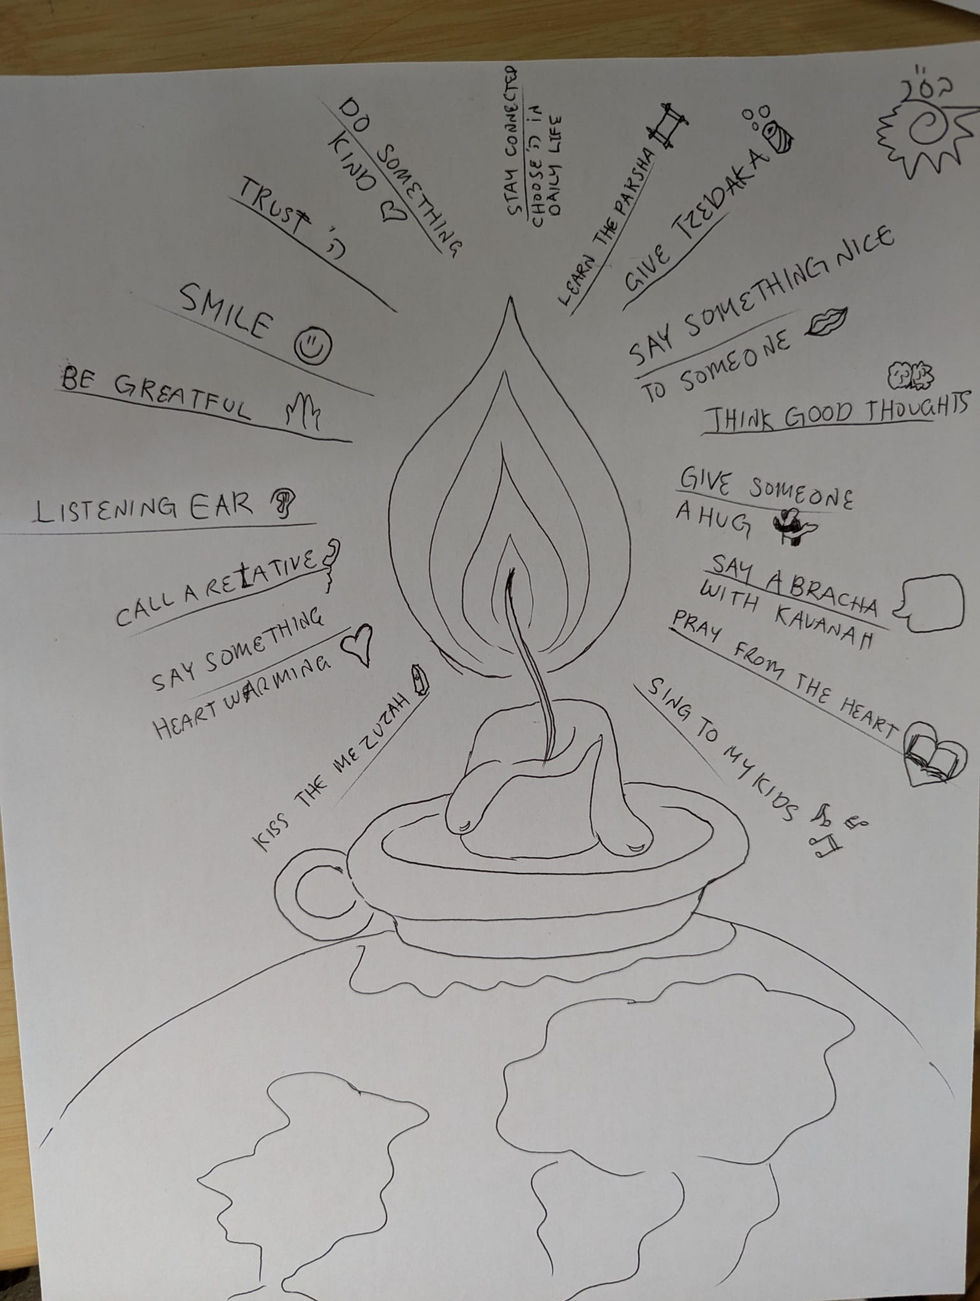 DO SOMETHING
KIND
TRUST ה'
SMILE
BE GREATFUL
LISTENING EAR
CALL A RELATIVE
SAY SOMETHING
HEART WARMING
KISS THE MEZUZAH
STAY CONNECTED
CHOOSE ה' IN
DAILY LIFE
LEARN THE PARSHA
GIVE TZEDAKA
SAY SOMETHING NICE
TO SOMEONE
THINK GOOD THOUGHTS
GIVE SOMEONE
A HUG
SAY A BRACHA
WITH KAVANAH
PRAY FROM THE HEART
SING TO MY KIDS